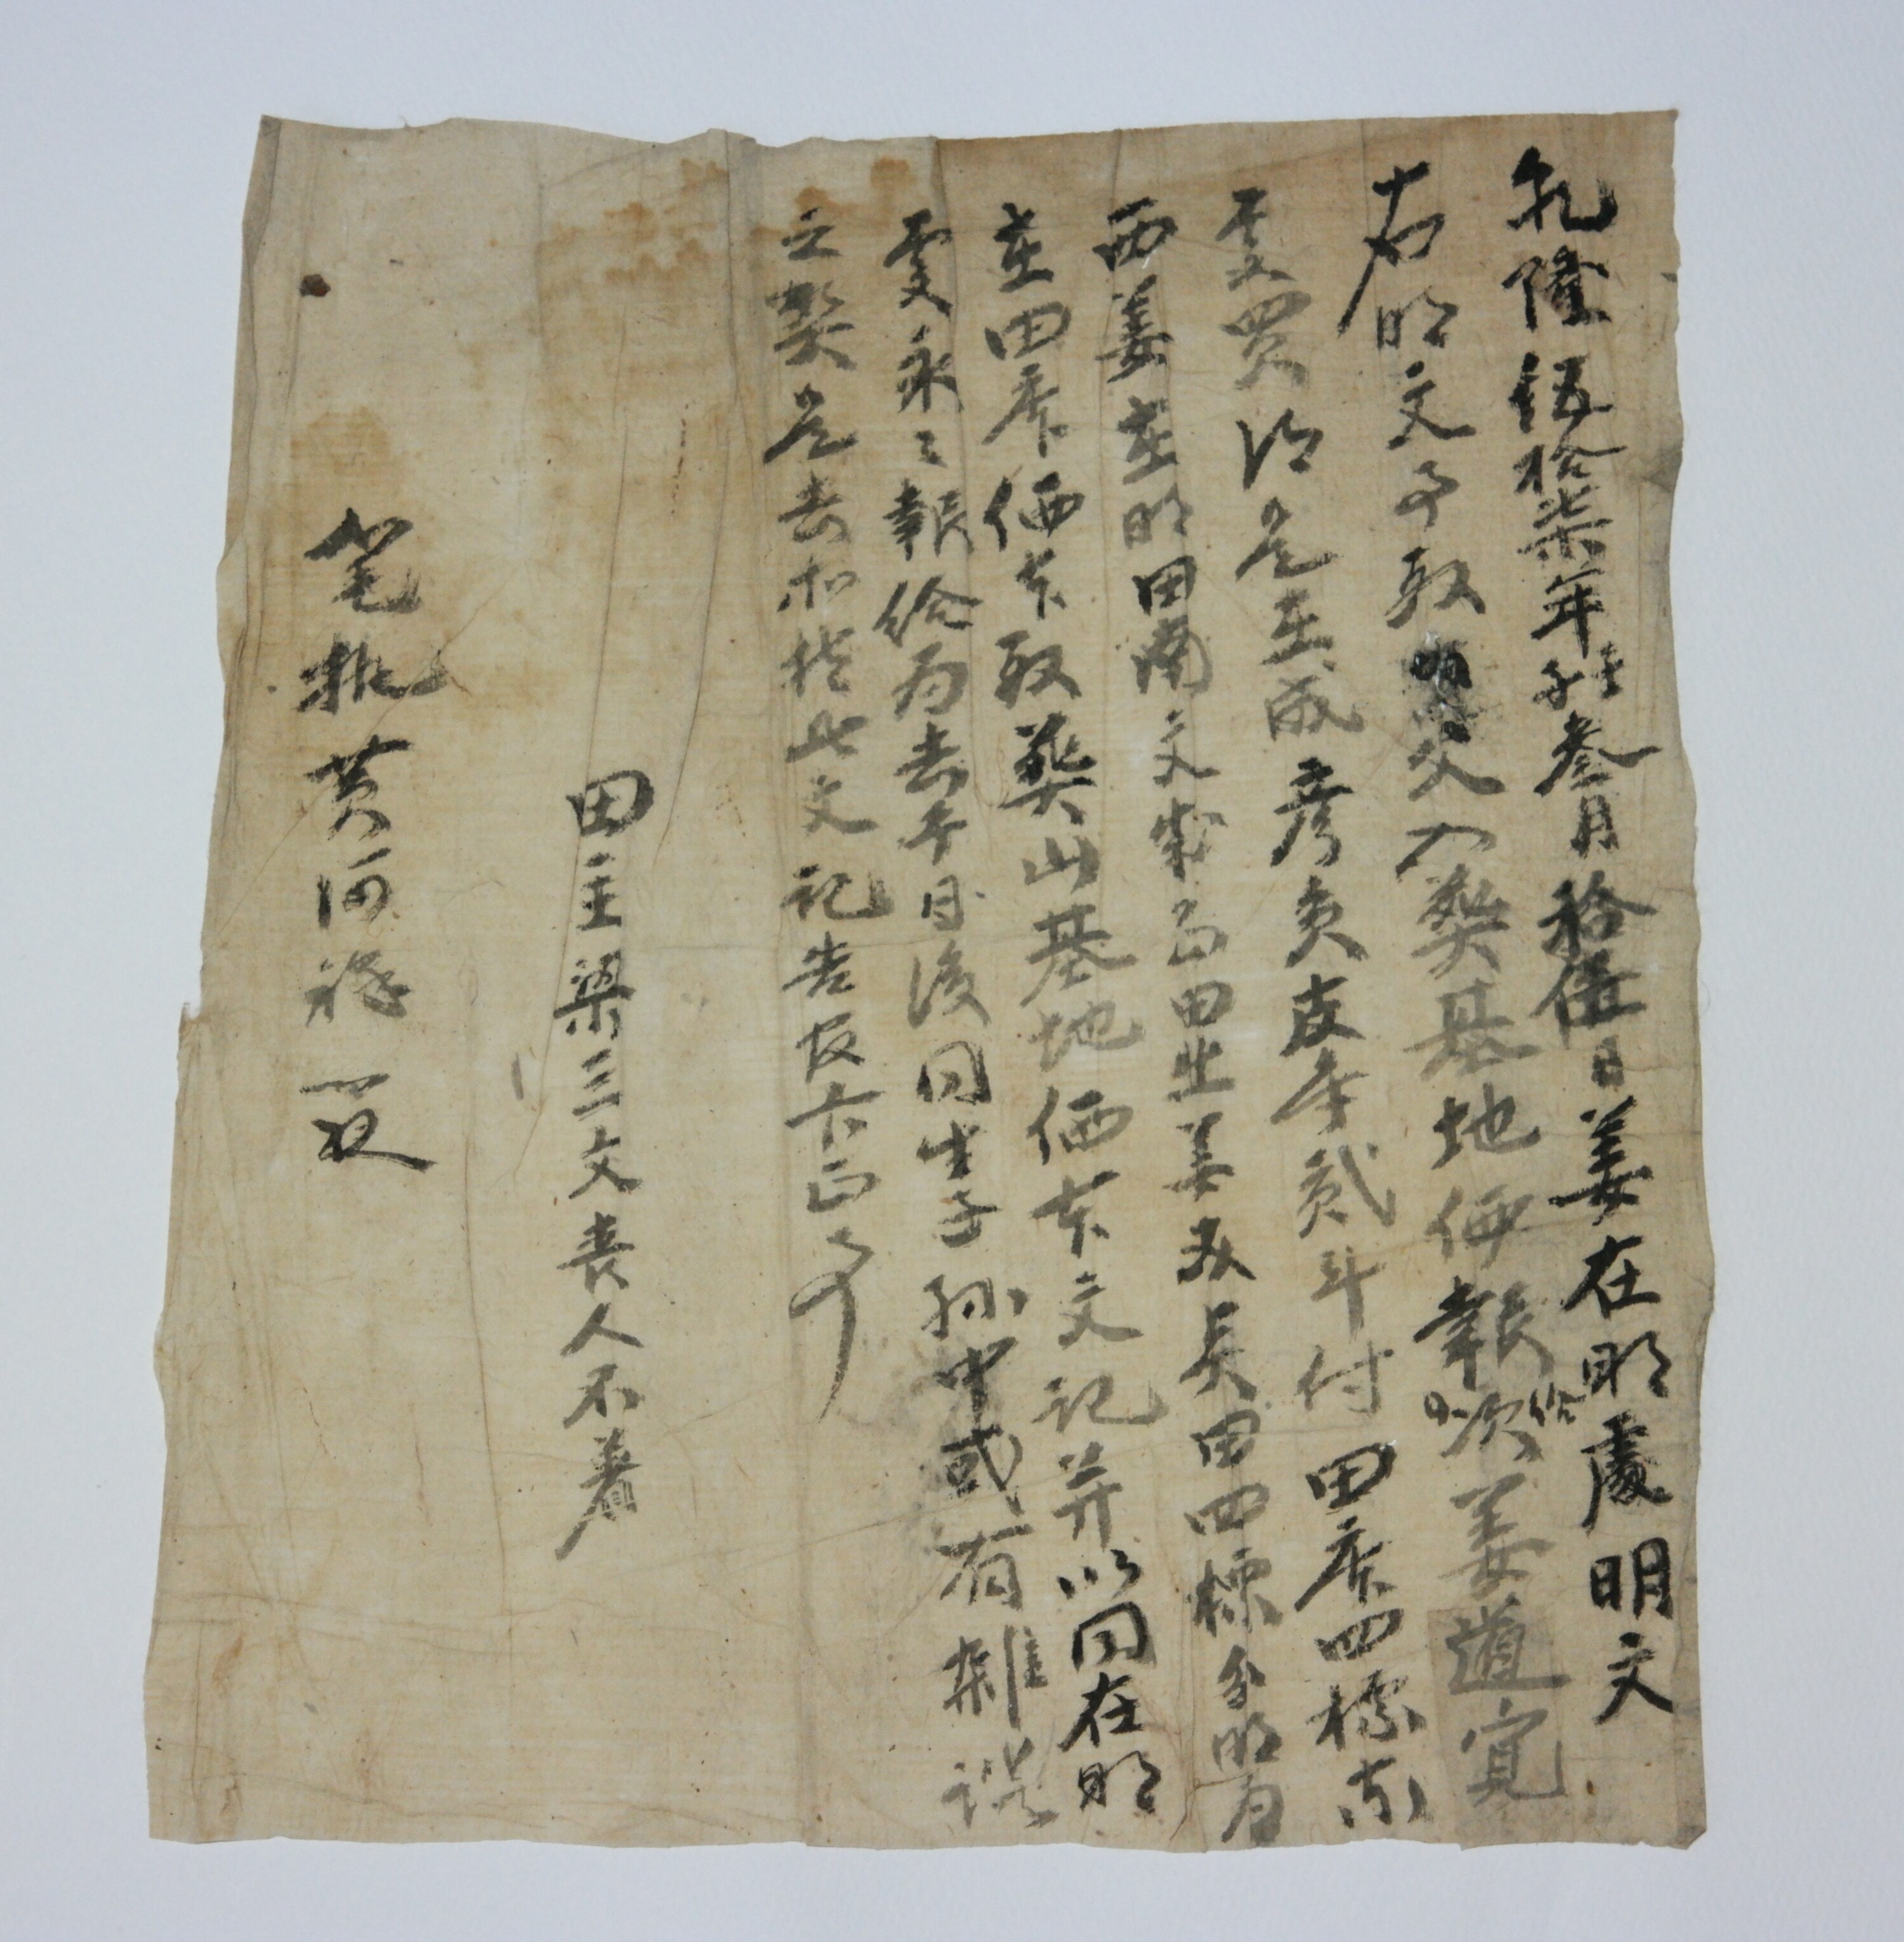 乹隆伍拾柒年壬子叁月拾伍日姜在明處明文
右明文事段 父入葬基地価報給次姜道寬
處買得是在 皮牟貳斗付田庫四標東
西姜在明田南文 田北姜 田四標分明為
在田庫価本段葬山基地価本文記并以同在明
處永々報給為去乎日後同生子孫中或有雜談
之弊是去等持此文記告官卞正事
田主梁三文喪人不着
筆執黃